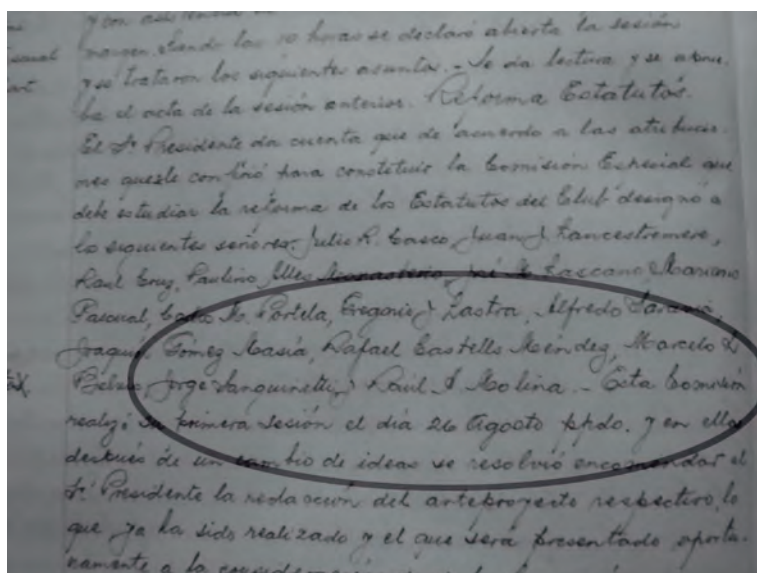 y con asistencia de
margen. Siendo las 10 horas se declaró abierta la sesión
y se trataron los siguientes asuntos. - Se da lectura y se aprue-
ba el acta de la sesión anterior. Reforma Estatutos.
El Sr. Presidente da cuenta que de acuerdo a las atribucio-
nes que se le confirió para constituir la Comisión Especial que
debe estudiar la reforma de los Estatutos del Club designó a
lo siguientes señores: Julio R. Casco, Juan J. Lancestremere,
Raul Cruz, Paulino Lascano Mariano
Pascual, M. Portela, Gregorio J Lastra, Alfredo Saravia,
Joaquín Gómez Masía, Rafael Castells Méndez, Marcelo L
Jorge Sanguinetti y Raúl A. Molina. - Esta Comisión
realizó su primera sesión el día 26 Agosto ppdo. y en ella
después de un cambio de ideas se resolvió encomendar el
Sr. Presidente la redacción del anteproyecto respectivo, lo
que, ya ha sido realizado y el que será presentado oportu-
namente a la